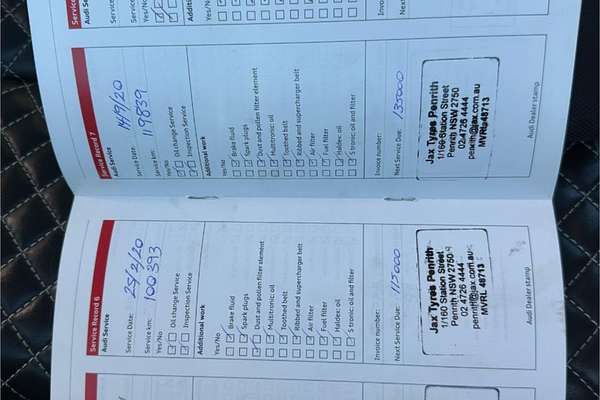 Service Record 7
Audi Service
Service Date: 14/9/20
Service km: 119839
Yes/No
Oil change Service
Inspection Service
Additional work
Yes/No
Brake fluid
Spark plugs
Dust and pollen filter element
Multitronic: oil
Toothed belt
Ribbed and supercharger belt
Air filter
Fuel filter
Haldex: oil
S tronic: oil and filter
Invoice number:
Next Service Due: 135000
Jax Tyres Penrith
1/160 Station Street
Penrith NSW 2750
02 4726 4444
penrith@jax.com.au
MVRL 48713
Audi Dealer stamp
Service Record 6
Audi Service
Service Date: 25/2/20
Service km: 100393
Yes/No
Oil change Service
Inspection Service
Additional work
Yes/No
Brake fluid
Spark plugs
Dust and pollen filter element
Multitronic: oil
Toothed belt
Ribbed and supercharger belt
Air filter
Fuel filter
Haldex: oil
S tronic: oil and filter
Invoice number:
Next Service Due: 115000
Jax Tyres Penrith
1/160 Station Street
Penrith NSW 2750
02 4726 4444
penrith@jax.com.au
MVRL 48713
Audi Dealer stamp